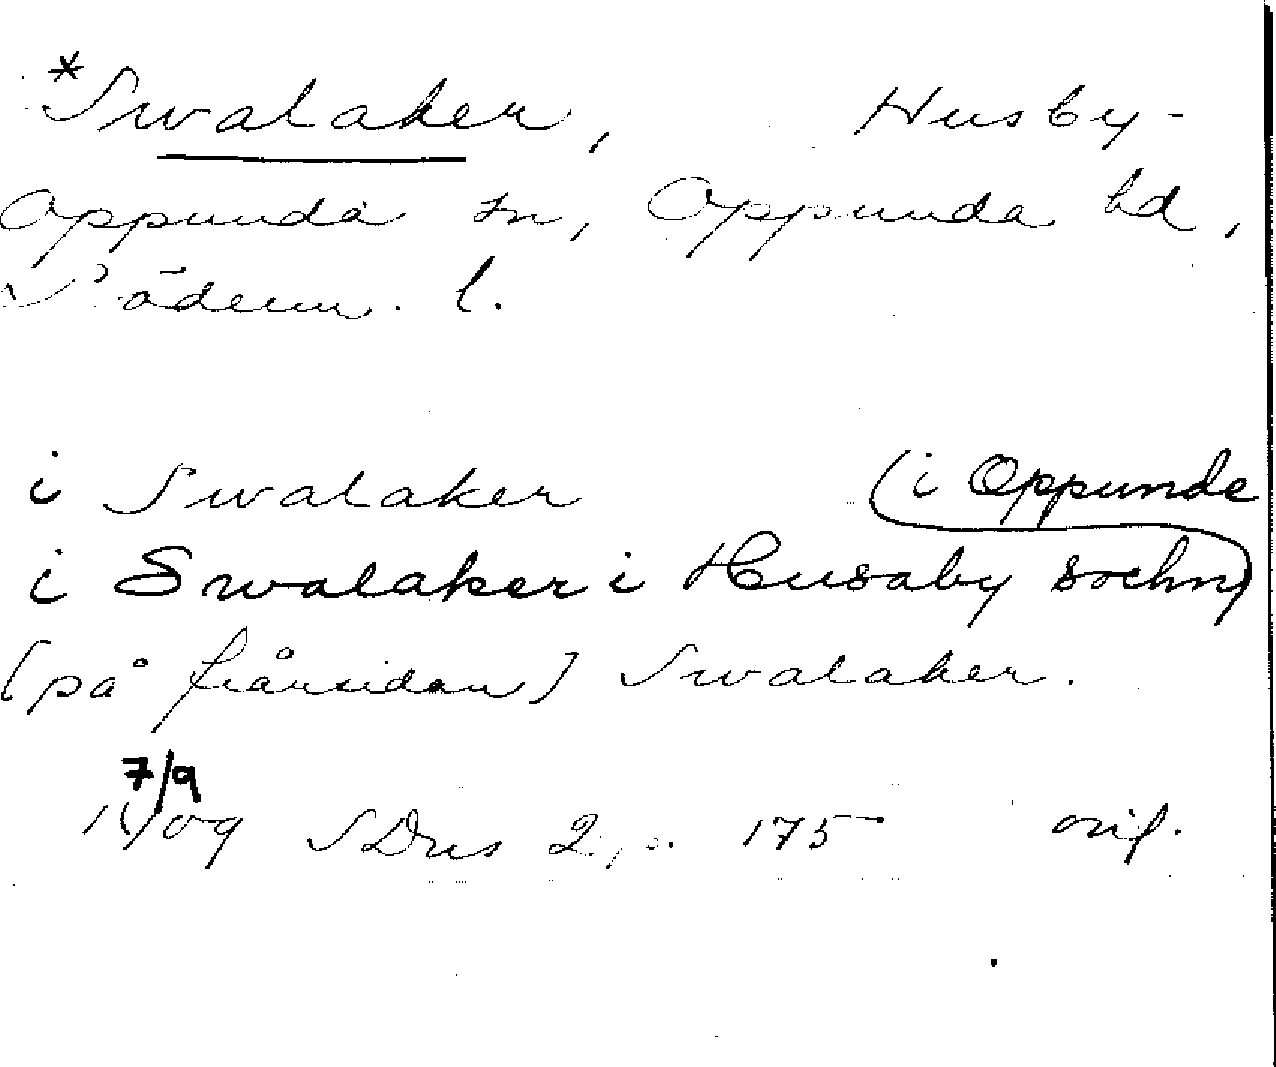 *Swalaker, Husby-
Oppunda sn, Oppunda hd,
Söderm. l.
i Swalaker (i Oppunde
i Swalaker i Husaby sochn)
[på frånsidan] Swalaker.
7/9
1409 SDns 2, s. 175 orig.